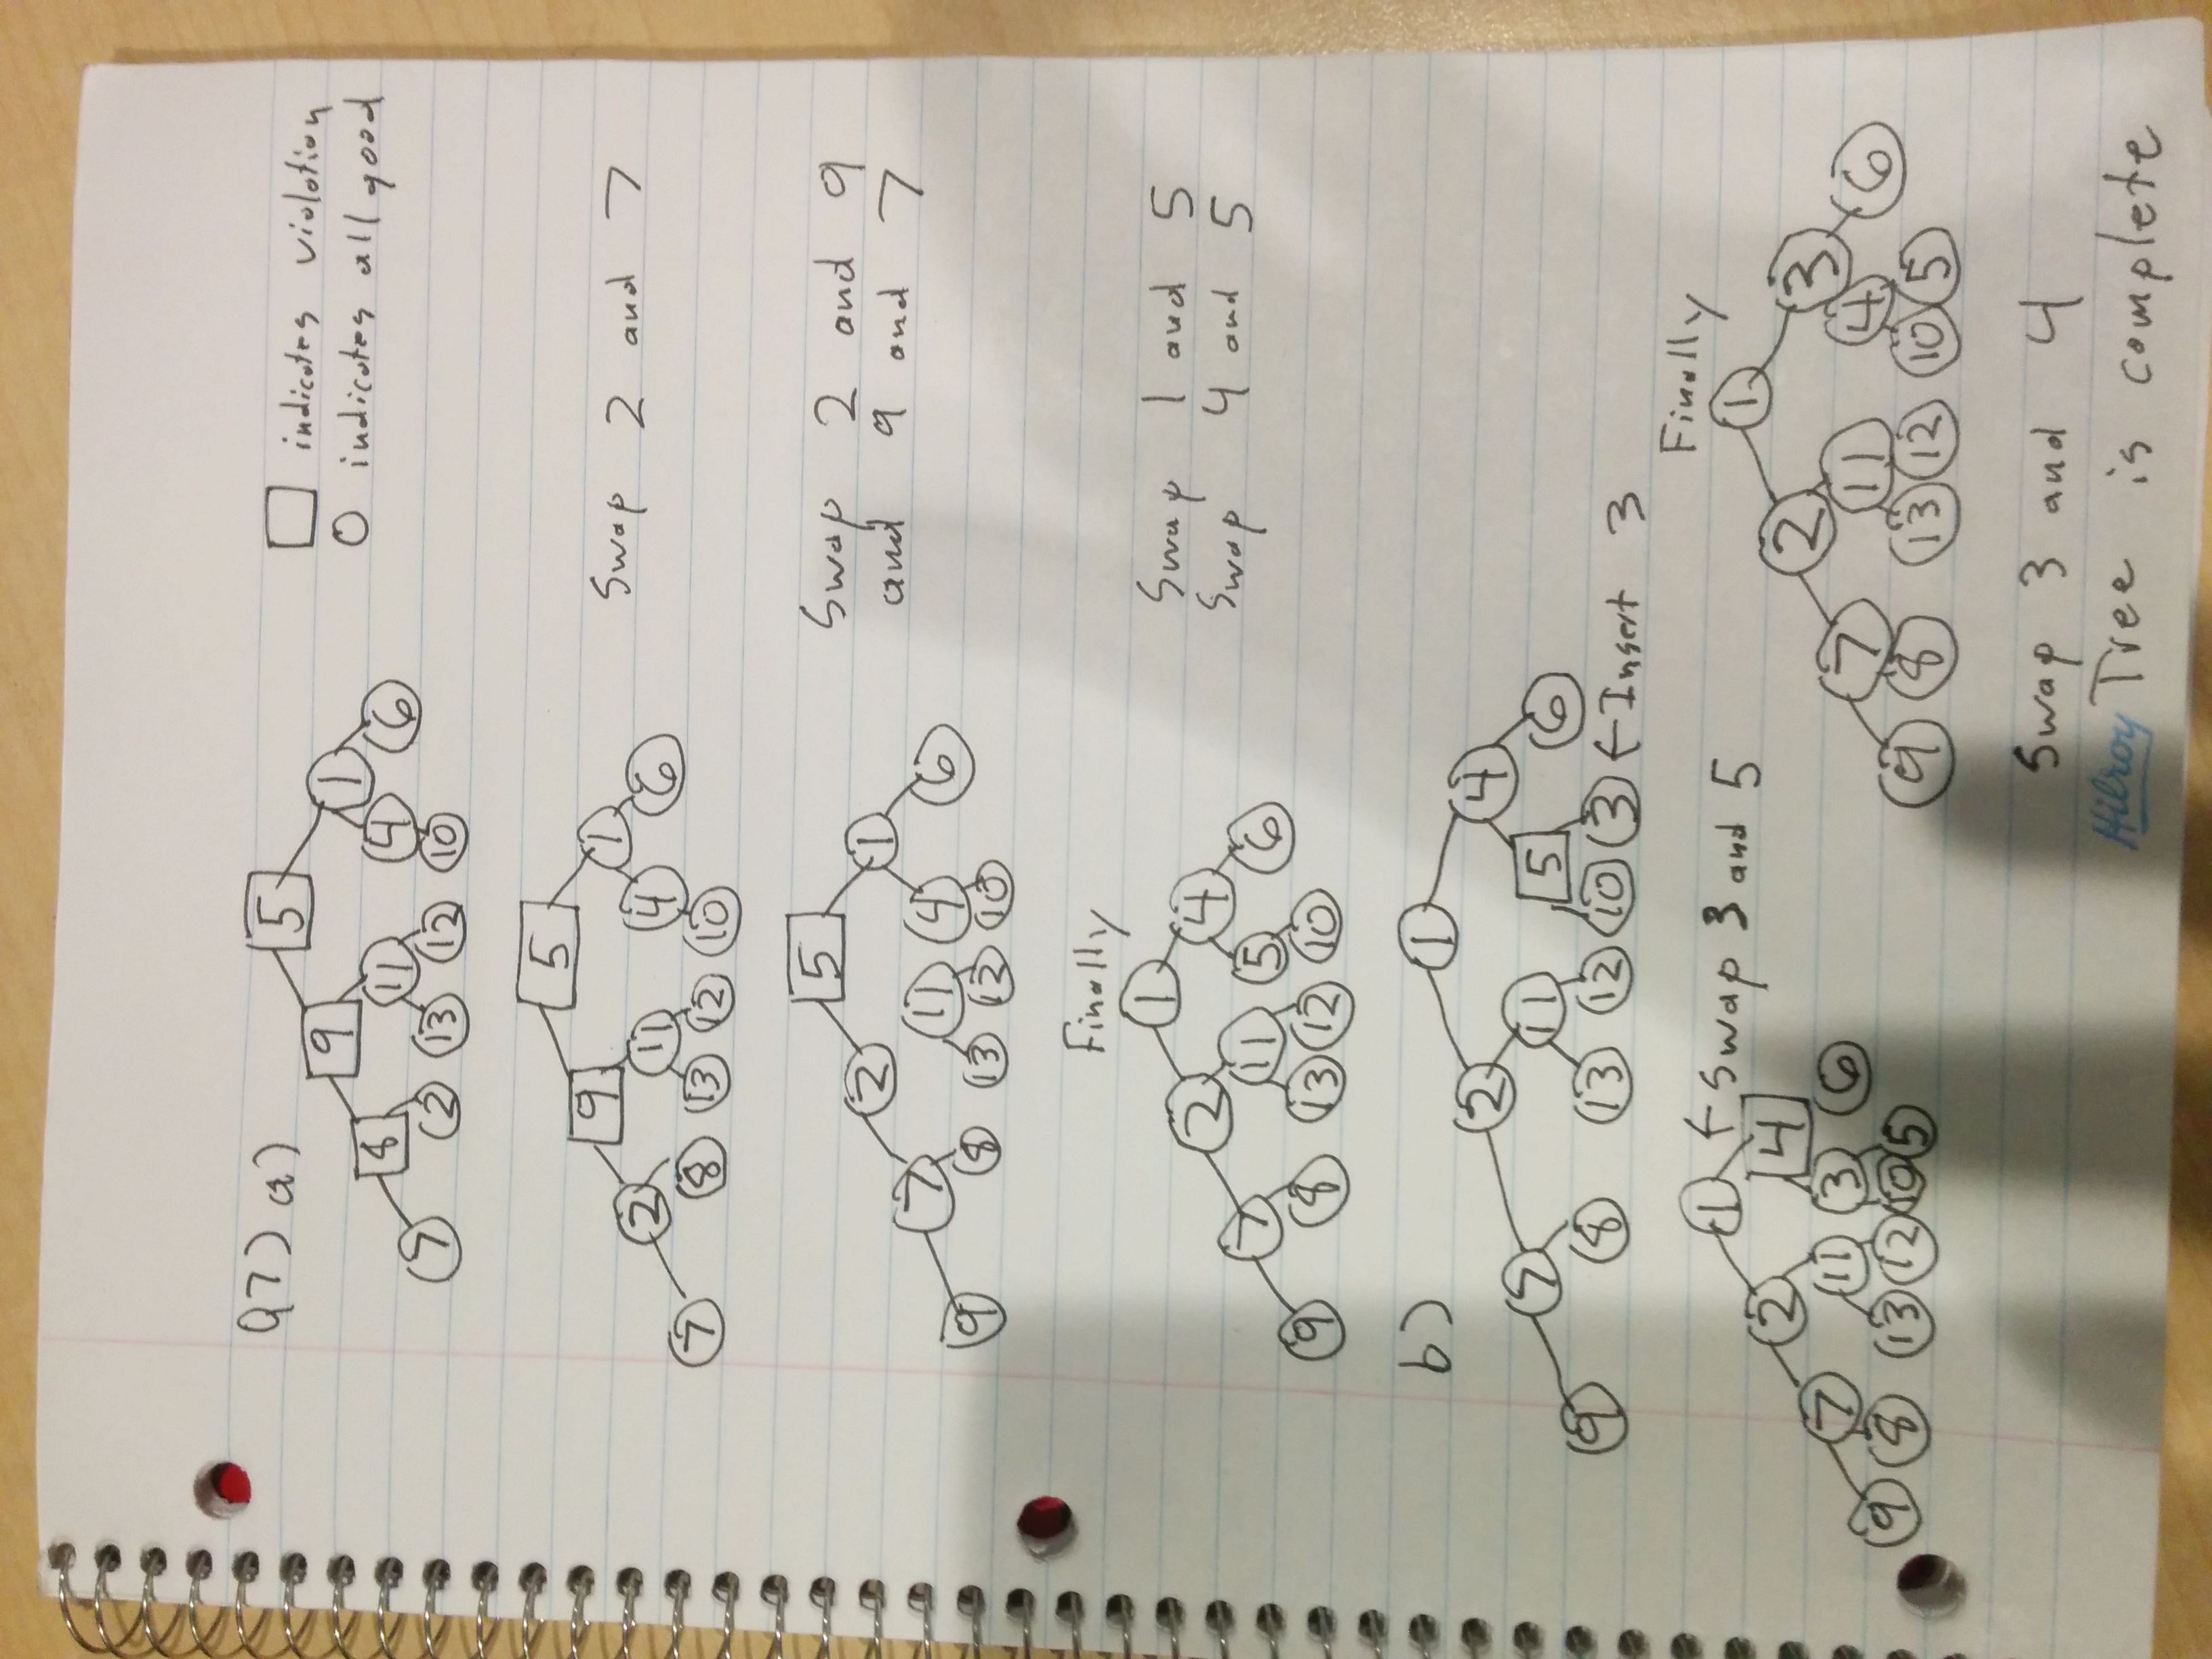 Q7) a)
5
9 1
8 11 4 6
7 2 13 12 10
□ indicates violation
○ indicates all good
5
9 1
2 11 4 6
7 8 13 12 10
Swap 2 and 7
5
2 1
7 11 4 6
9 8 13 12 10
Swap 2 and 9
and 9 and 7
Finally
1
2 4
7 11 5 6
9 8 13 12 10
Swap 1 and 5
Swap 4 and 5
b)
1
2 4
7 11 5 6
9 8 13 12 10 3 ← Insert 3
1 ← Swap 3 and 5
2 4
7 11 3 6
9 8 13 12 10 5
Finally
1
2 3
7 11 4 6
9 8 13 12 10 5
Swap 3 and 4
Hilroy Tree is complete